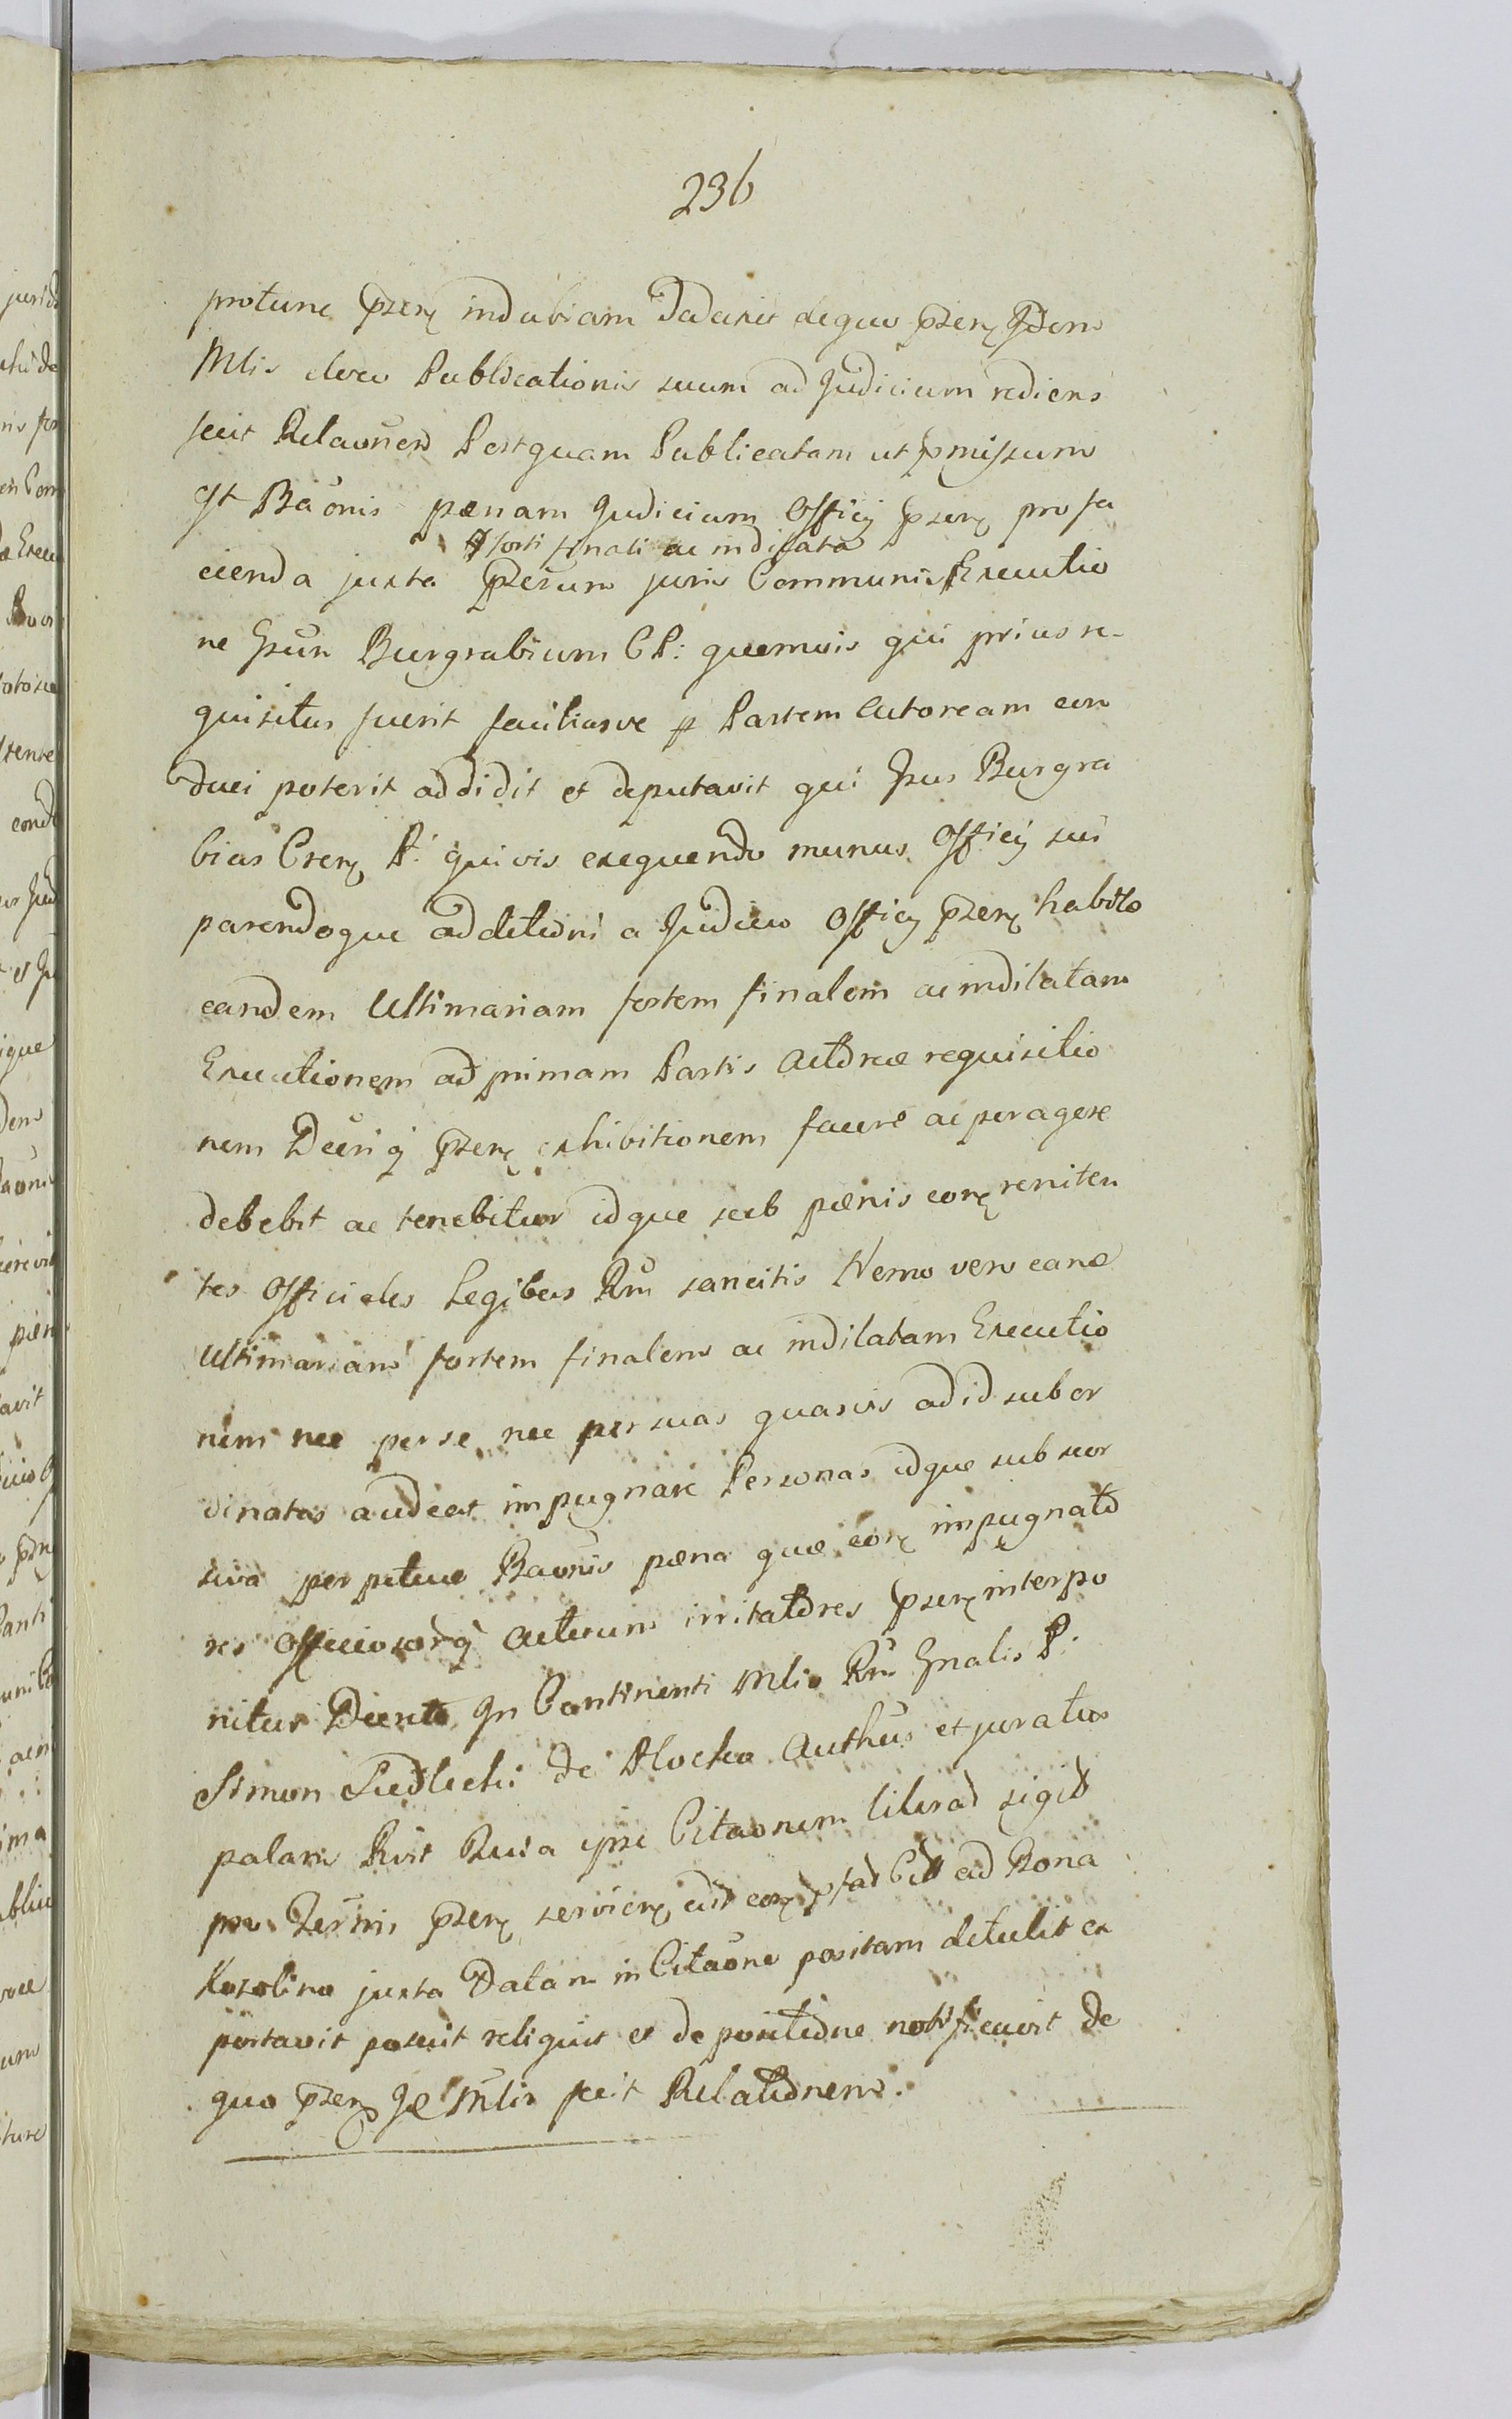 236
protunc pzen indubiam Daduxit dequo pzen Jdem
Mlis eloco Publicationis suum ad Judicium rediens
fecit Relaonem Postquam Publicatam ut pmissum
est Baonis pœnam Judicium Officij pzen pro fa
# forti finali ac indilata
cienda juxta pzesum juris Communis # Executio
ne Gsum Burgrabium CP: quemvis qui prius re-
quisitus fuerit faciliusve p Partem Actoream con
duci poterit addidit et deputavit qui Gsus Burgra
bius Crem P. quivis exequendo munus Officij sui
parendoque additioni a Judicio Officij pzen habito
eandem Ultimariam fortem finalem ac indilatam
Executionem ad primam Partis Actoreæ requisitio
nem Decriq pzen exhibitionem facere ac peragere
debebit ac tenebitur idque sub pœnis eorm reniten
tes Officiales Legibus Rni sancitis Nemo vero eand
Ultimariam fortem finalem ac indilatam Executio
nem nec per se nec per suas quasvis ad id subor
dinatas audeat impugnare Personas idque sub suor
sivâ perpetuæ Baonis pœna quæ eorm impugnato
res Officiosorq Actuum irritatores pzen interpo
nitur Decreto In Continenti Mlis Rni Gnalis P:
Simon Siedlecki de Plocka Authus et juratus
palam Rvit Quia ipse Citaonem literad sigid
pro Termis pzen servien eid eorm pfad Citt ad Bona
Kozolina juxta Datam in Citaone positam detulit ex
portavit posuit reliquit et de positione notificavit de
quo pzen Jd Mlis fecit Relationem.